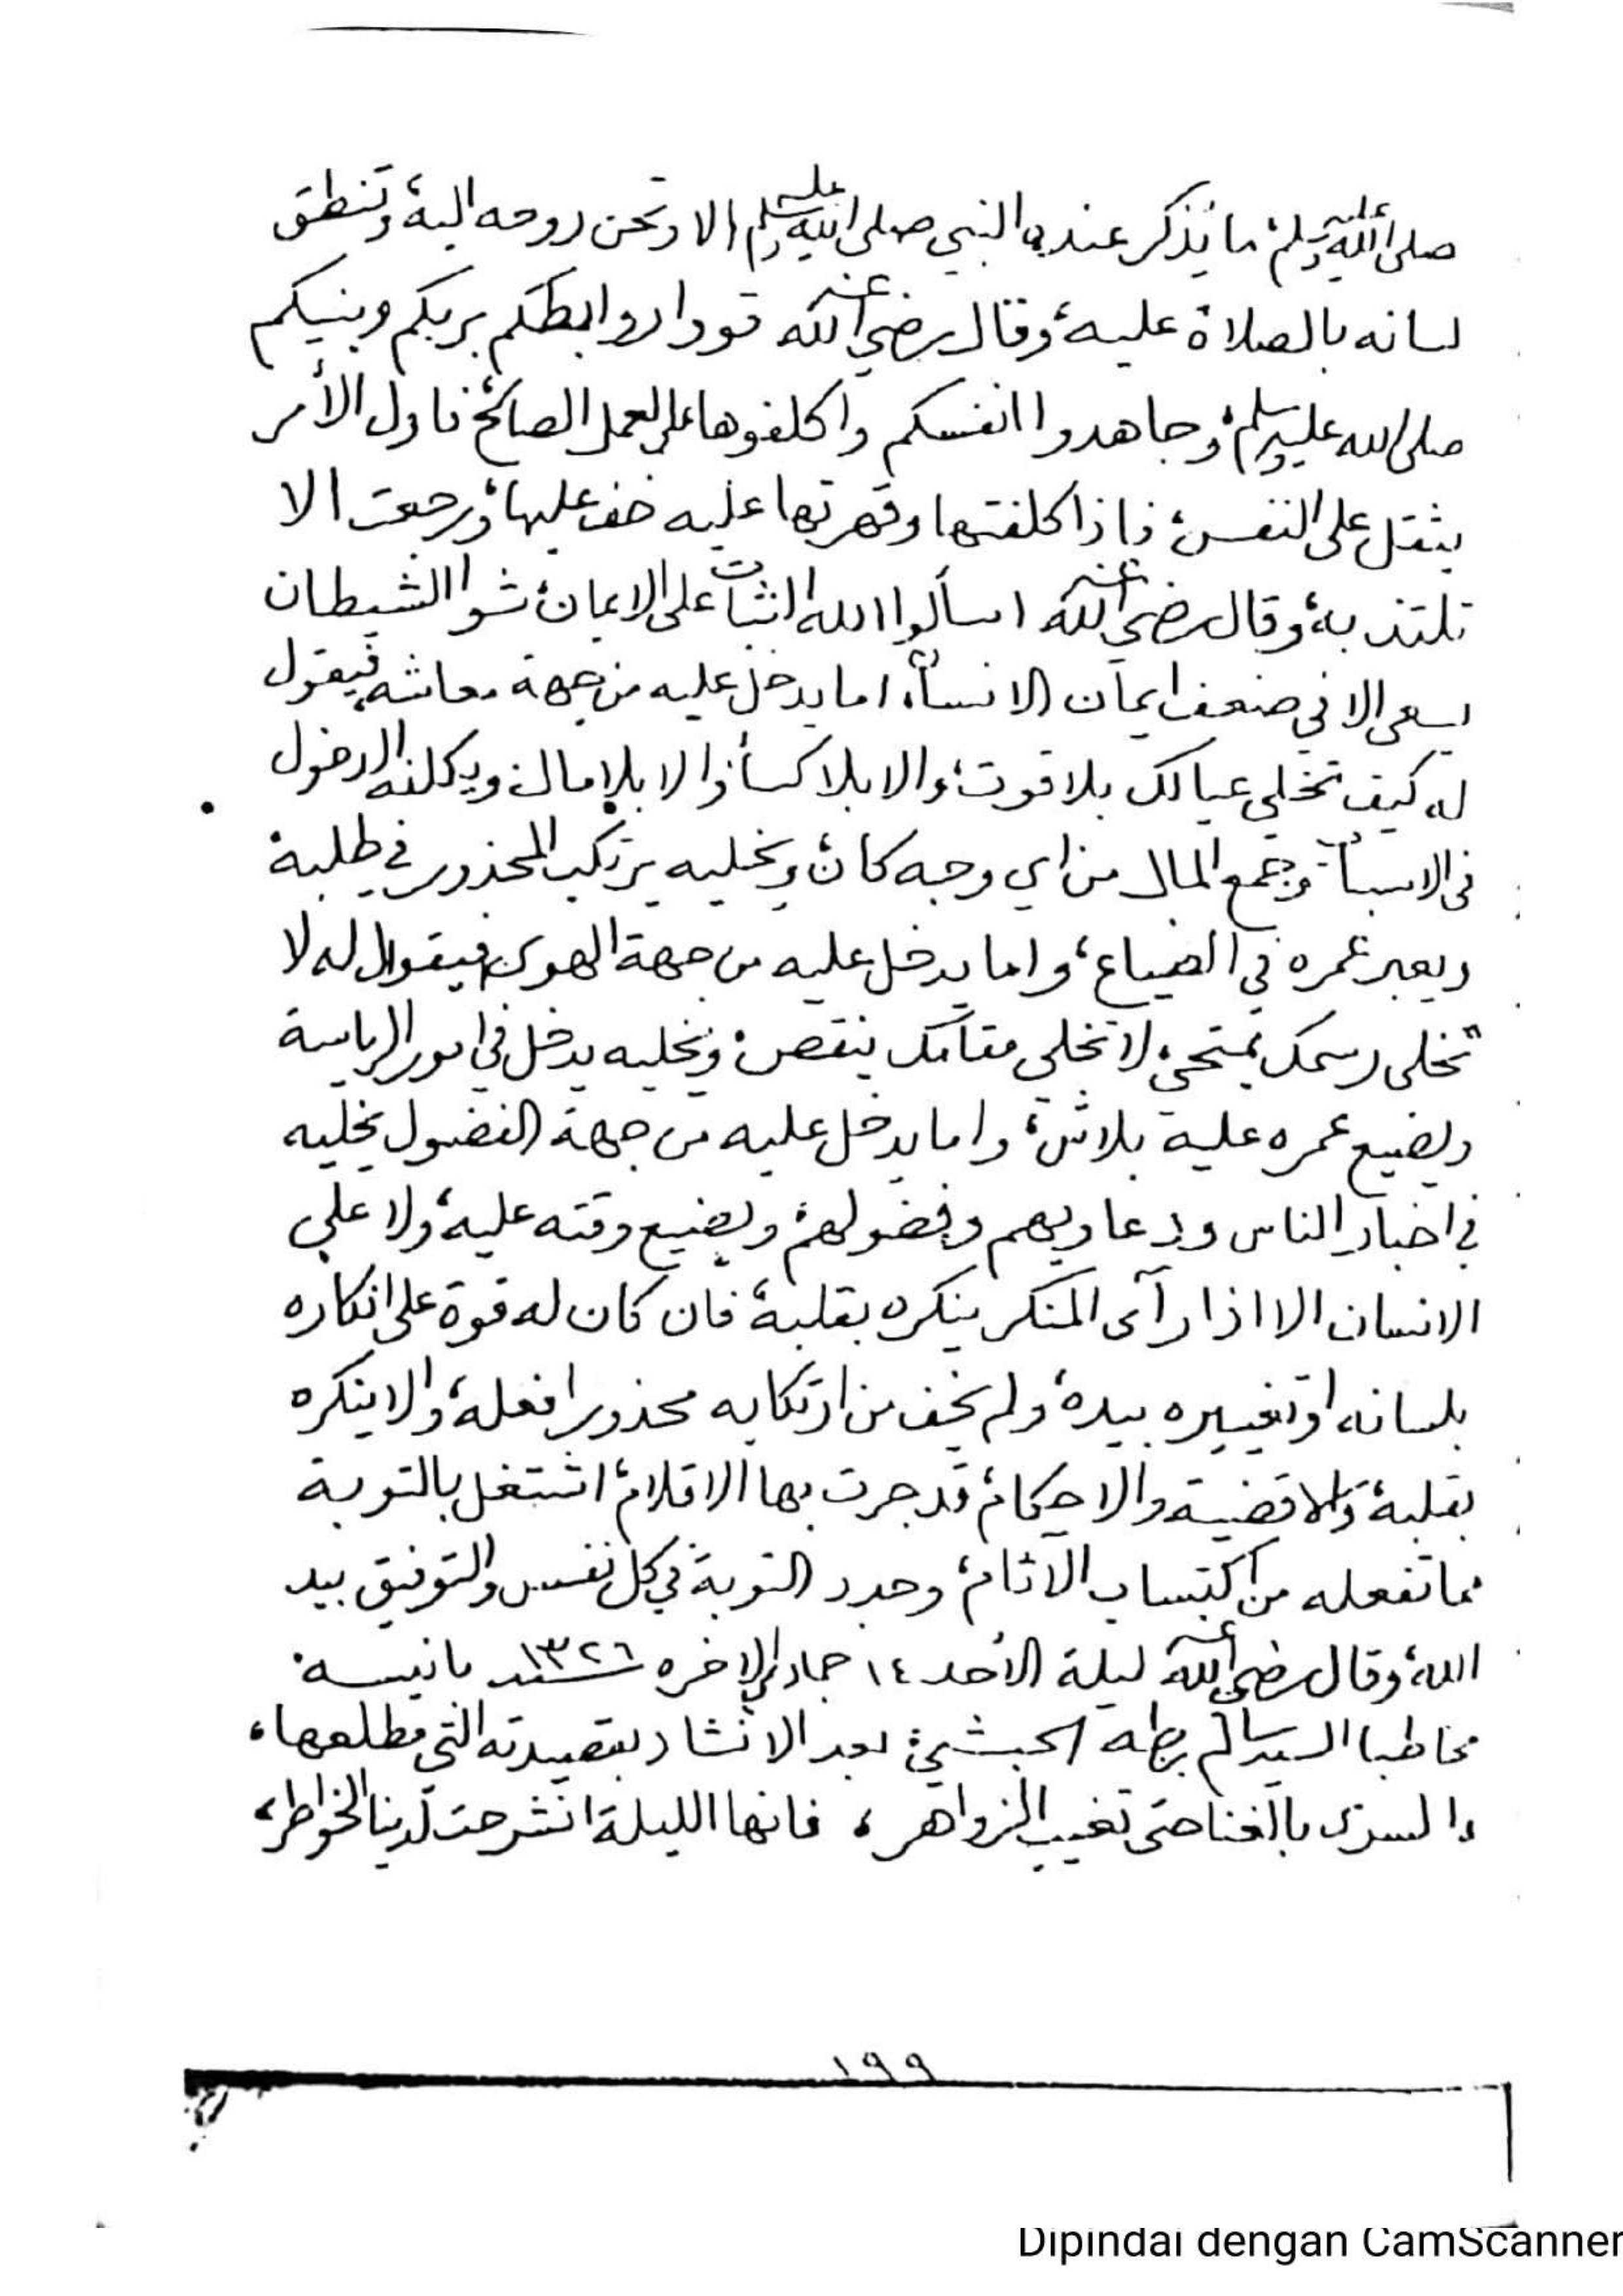 صلى الله عليه وسلم، ما يذكر عنده النبي صلى الله عليه وسلم الا وتحن روحه اليه، وتنطق
لسانه بالصلاة عليه، وقال رضي الله عنه قووا روابطكم بربكم وبنبيكم
صلى الله عليه وسلم، وجاهدوا انفسكم واكلفوها على العمل الصالح، فاول الأمر
يثقل على النفس، فاذا كلفتها وقهرتها عليه خف عليها، ورجعت الا
تلتذ به، وقال رضي الله عنه اسألوا الله الثبات على الايمان، شوا الشيطان
يسعى الا في ضعف ايمان الانسان، اما يدخل عليه من جهة معاشه، فيقول
له كيف تخلي عيالك بلا قوت، والا بلا كسأ، والا بلا مال، ويكلفه الدخول
في الاسباب وجمع المال من اي وجه كان، ويخليه يرتكب المحذور في طلبه
ويعبر عمره في الضياع، واما يدخل عليه من جهة الهوى، فيقول له لا
تخلى رسمك يمتحي، لا تخلي مقامك ينقص، ويخليه يدخل في امور الرياسة
ويضيع عمره عليه بلاش، واما يدخل عليه من جهة الفضول يخليه
في اخبار الناس ودعاويهم وفضولهم، ويضيع وقته عليه، ولا على
الانسان الا اذا رآى المنكر ينكره بقلبه، فان كان له قوة على انكاره
بلسانه او تغييره بيده، ولم يخف من ارتكابه محذور افعله، والا ينكره
بقلبه، والاقضية والاحكام، قد جرت بها الاقلام، اشتغل بالتوبة
مما تفعله من اكتساب الآثام، وجدد التوبة في كل نفس والتوفيق بيد
الله، وقال رضي الله عنه ليلة الأحد ١٤ جماد الاخره سنة ١٣٢٦ بانيسه
مخاطبا السيد سالم بن طه الحبشي، بعد الانشاد بقصيدته التي مطلعها،
بالغنا حتى تغيب الزواهر، فانها الليلة انشرحت لدينا الخواطر،
١٩٩
Dipindai dengan CamScanner